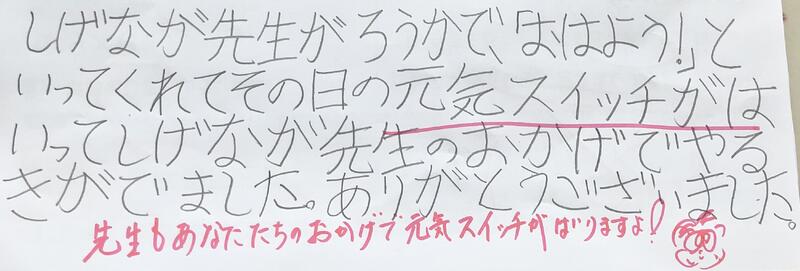 しげなが先生がろうかで、「おはよう!」と
いってくれてその日の元気スイッチがは
いってしげなが先生のおかげでやる
きがでました。ありがとうございました。
先生もあなたたちのおかげで元気スイッチがばりますよ!